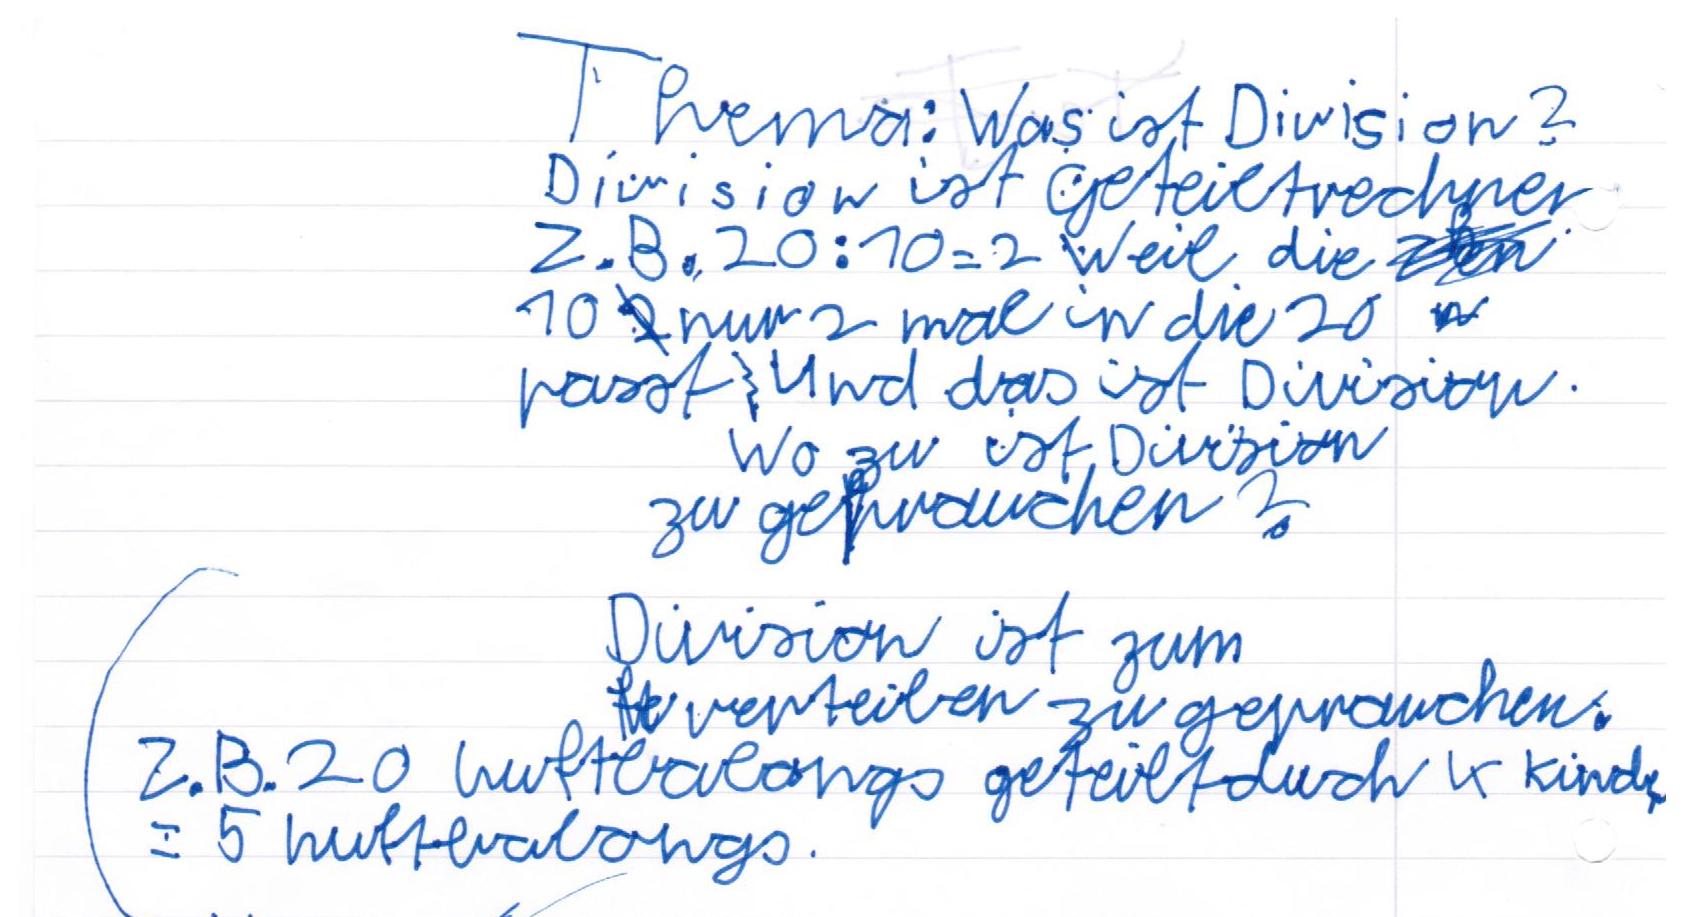 Thema: Was ist Division?
Division ist Geteiltrechner
Z.B. 20:10=2 Weil die
10 nur 2 mal in die 20
passt Und das ist Division.
Wo zu ist Division
zu geprauchen?
Division ist zum
verteilen zu geprauchen.
Z.B. 20 luftbalongs geteilt duch 4 Kinder
= 5 luftbalongs.